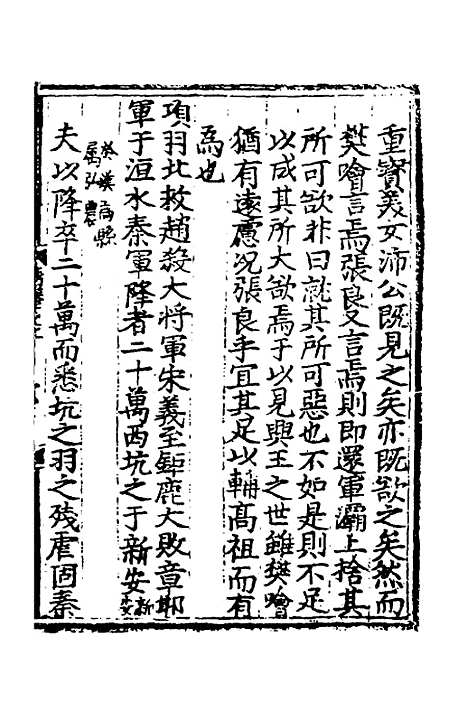 重寶義女沛公既見之矣亦既欲之矣然而
樊噲言焉張良又言焉則即還軍灞上捨其
所可欲非曰就其所可惡也不如是則不足
以成其所大欲焉于以見興王之世雖樊噲
猶有遠慮况張良乎宜其足以輔高祖而有
爲也
項羽北救趙殺大將軍宋義至鉅鹿大敗章邯
軍于洹水秦軍降者二十萬西坑之于新安新安
於漢爲縣屬弘農
夫以降卒二十萬而悉坑之羽之殘虐固秦